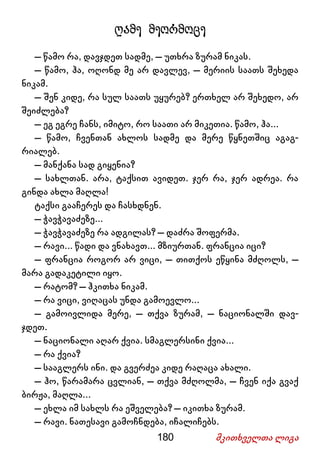 ღამე მეორმოცე
— წამო რა, დავჯდეთ სადმე, — უთხრა ზურამ ნიკას.
— წამო, ჰა, ოღონდ მე არ დავლევ, — მერიის საათს შეხედა
ნიკამ.
— შენ კიდე, რა სულ საათს უყურებ? ერთხელ არ შეხედო, არ
შეიძლება?
— ეგ ეგრე ჩანს, იმიტო, რო საათი არ მიკეთია. წამო, ჰა...
— წამო, ჩვენთან ახლოს სადმე და მერე წყნეთშიც აგაგ-
რიალებ.
— მანქანა სად გიყენია?
— სახლთან. არა, ტაქსით ავიდეთ. ჯერ რა, ჯერ ადრეა. რა
გინდა ახლა მაღლა!
ტაქსი გააჩერეს და ჩასხდნენ.
— ჭავჭავაძეზე...
— ჭავჭავაძეზე რა ადგილას? — დაძრა შოფერმა.
— რავი... წადი და ვნახავთ... მზიურთან. ფრანცია იცი?
— ფრანცია როგორ არ ვიცი, — თითქოს ეწყინა მძღოლს, —
მარა გადაკეტილი იყო.
— რატომ? — ჰკითხა ნიკამ.
— რა ვიცი, ვიღაცას უნდა გამოევლო...
— გამოივლიდა მერე, — თქვა ზურამ, — ნაციონალში დავ-
ჯდეთ.
— ნაციონალი აღარ ქვია. სმაგლერსინი ქვია...
— რა ქვია?
— სააგლერს ინი. და გვერძეა კიდე რაღაცა ახალი.
— ჰო, წარამარა ცვლიან, — თქვა მძღოლმა, — ჩვენ იქა გვაქ
ბირჟა, მაღლა...
— ეხლა იმ სახლს რა ეშველება? — იკითხა ზურამ.
— რავი. ნათესავი გამოჩნდება, იჩალიჩებს.
180 მკითხველთა ლიგა